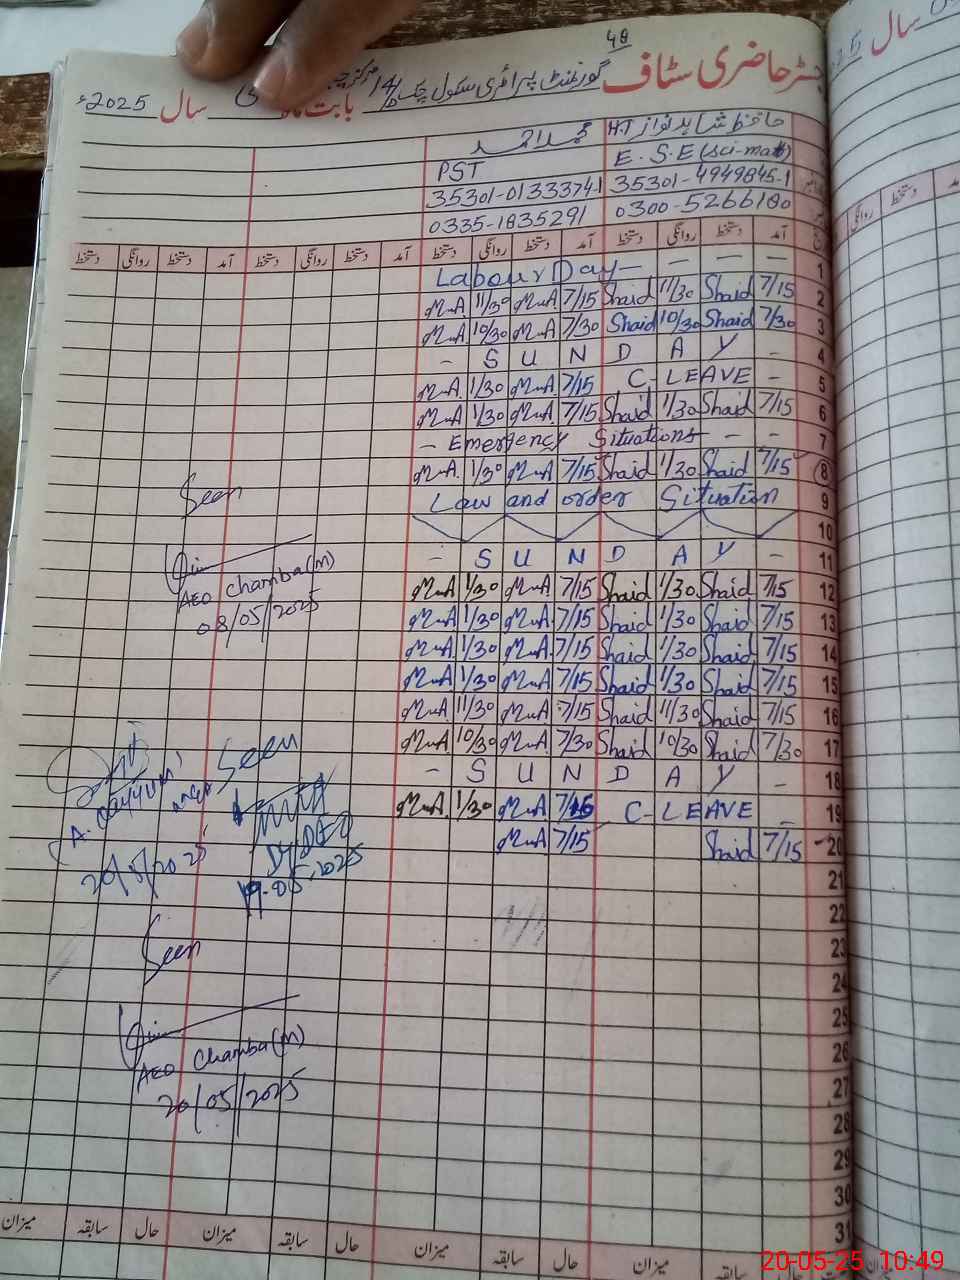 48
رجسٹر حاضری سٹاف گورنمنٹ پرائمری سکول چک 14/D مرکز بابت ماہ سال 2025ء
حافظ شاہد نواز H.T محمد احمد
E.S.E (Sci-math) PST
35301-4949845-1 35301-0133374-1
0300-5266180 0335-1835291
آمد دستخط روانگی دستخط آمد دستخط روانگی دستخط آمد دستخط روانگی دستخط آمد دستخط روانگی دستخط
Labour Day — — — — 1
M.A 11/30 M.A 7/15 Shaid 11/30 Shaid 7/15 2
M.A 10/30 M.A 7/30 Shaid 10/30 Shaid 7/30 3
- S U N D A Y - 4
M.A 1/30 M.A 7/15 C. LEAVE - 5
M.A 1/30 M.A 7/15 Shaid 1/30 Shaid 7/15 6
- Emergency Situations - - 7
M.A 1/30 M.A 7/15 Shaid 1/30 Shaid 7/15 8
Law and order Situation 9
10
- S U N D A Y - 11
M.A 1/30 M.A 7/15 Shaid 1/30 Shaid 7/15 12
M.A 1/30 M.A 7/15 Shaid 1/30 Shaid 7/15 13
M.A 1/30 M.A 7/15 Shaid 1/30 Shaid 7/15 14
M.A 1/30 M.A 7/15 Shaid 1/30 Shaid 7/15 15
M.A 11/30 M.A 7/15 Shaid 11/30 Shaid 7/15 16
M.A 10/30 M.A 7/30 Shaid 10/30 Shaid 7/30 17
- S U N D A Y - 18
M.A 1/30 M.A 7/15 C-LEAVE - 19
M.A 7/15 Shaid 7/15 20
21
22
23
24
25
26
27
28
29
30
31
Seen
AEO Chamba(M)
08/05/2025
Seen
A. Qayyum
20/5/2025
19-05-2025
Seen
AEO Chamba(M)
20/05/2025
حال سابقہ میزان حال سابقہ میزان حال سابقہ میزان حال سابقہ میزان
سال
دستخط روانگی
میزان
20-05-25 10:49